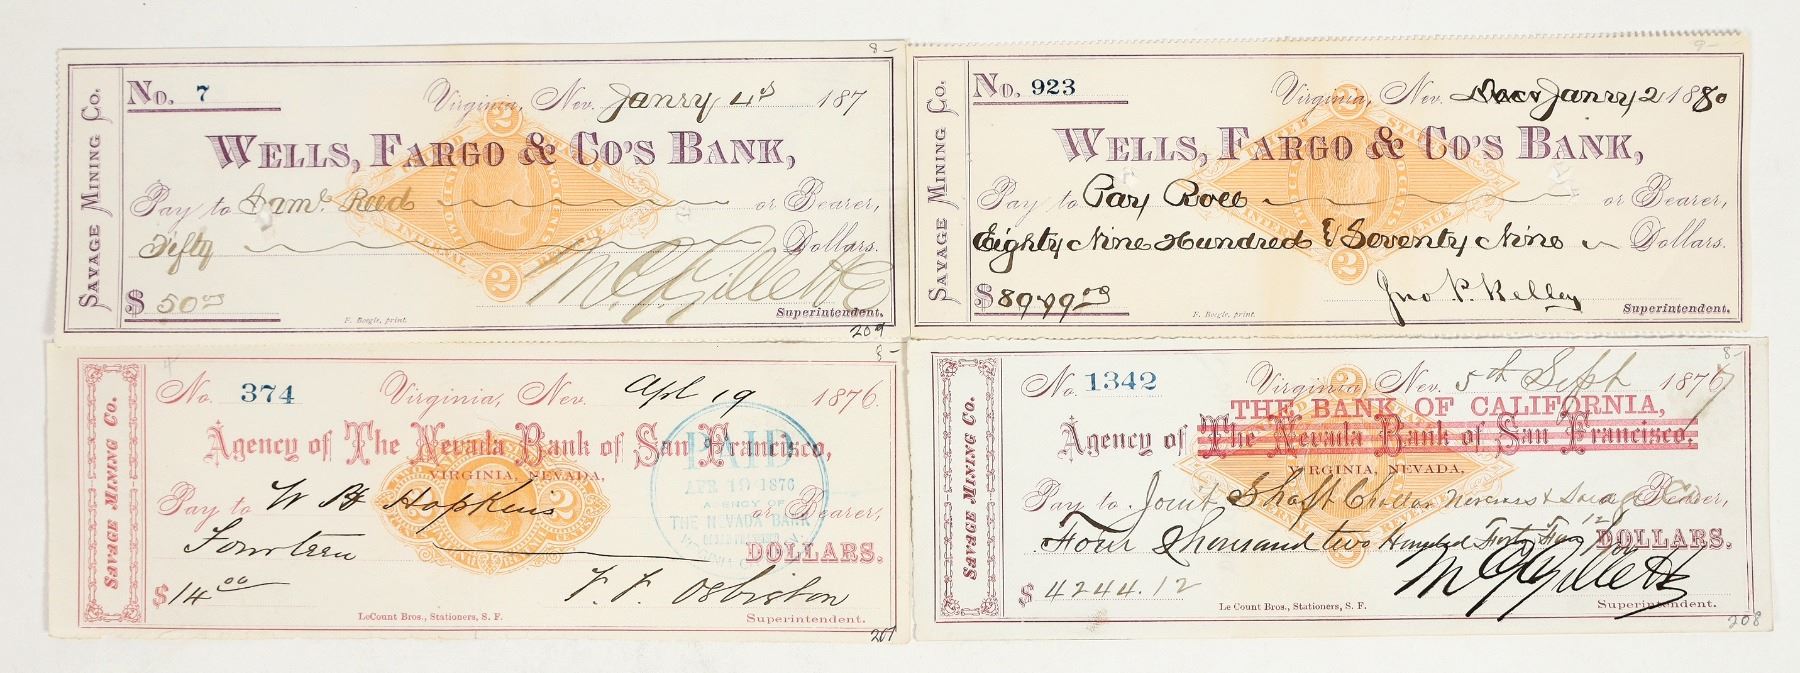 8-
SAVAGE MINING CO.
No. 7
Virginia, Nev. Janry 4th 187
WELLS, FARGO & CO'S BANK,
Pay to Saml. Reed or Bearer,
Fifty Dollars.
$ 50.00
Superintendent.
F. Boegle, print.
209
9-
SAVAGE MINING CO.
No. 923
Virginia, Nev. Janry 2 1880
WELLS, FARGO & CO'S BANK,
Pay to Pay Roll or Bearer,
Eighty Nine Hundred & Seventy Nine Dollars.
$ 8979.00
Jno. P. Kelley
Superintendent.
F. Boegle, print.
8-
SAVAGE MINING CO.
No. 374
Virginia, Nev. Apl 19 1876.
Agency of The Nevada Bank of San Francisco,
VIRGINIA, NEVADA,
Pay to W H Hopkins or Bearer,
Fourteen DOLLARS.
$ 14.00
F. F. Osbiston
LeCount Bros., Stationers, S. F.
Superintendent.
PAID
APR 19 1876
AGENCY OF
THE NEVADA BANK
207
8-
SAVAGE MINING CO.
No. 1342
Virginia, Nev. 5th Sept 1877
THE BANK OF CALIFORNIA,
Agency of The Nevada Bank of San Francisco,
VIRGINIA, NEVADA,
Pay to Joint Shaft Chollar Norcross & Savage Bearer,
Four Thousand two Hundred Forty Four 12/100 DOLLARS.
$ 4244.12
Le Count Bros., Stationers, S. F.
Superintendent.
208